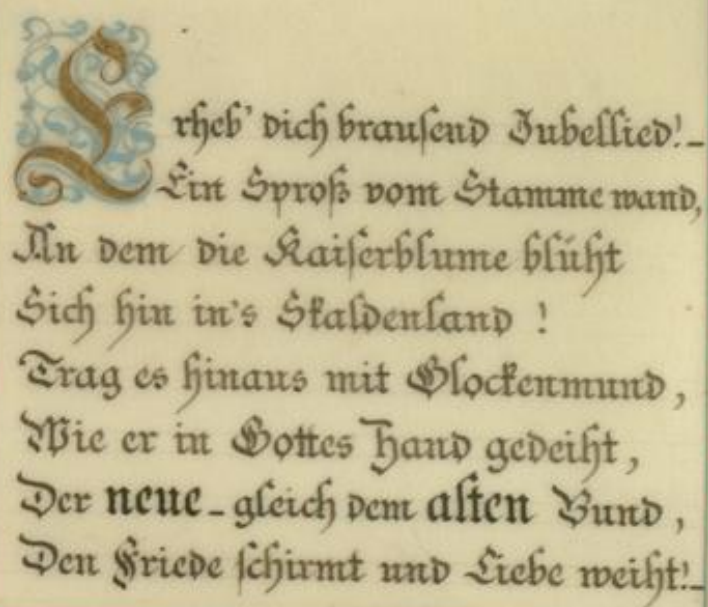 Erheb' dich brausend Jubellied! –
Ein Sproß vom Stamme wand,
An dem die Kaiserblume blüht
Sich hin in's Skaldenland !
Trag es hinaus mit Glockenmund,
Wie er in Gottes Hand gedeiht,
Der neue – gleich dem alten Bund,
Den Friede schirmt und Liebe weiht! –